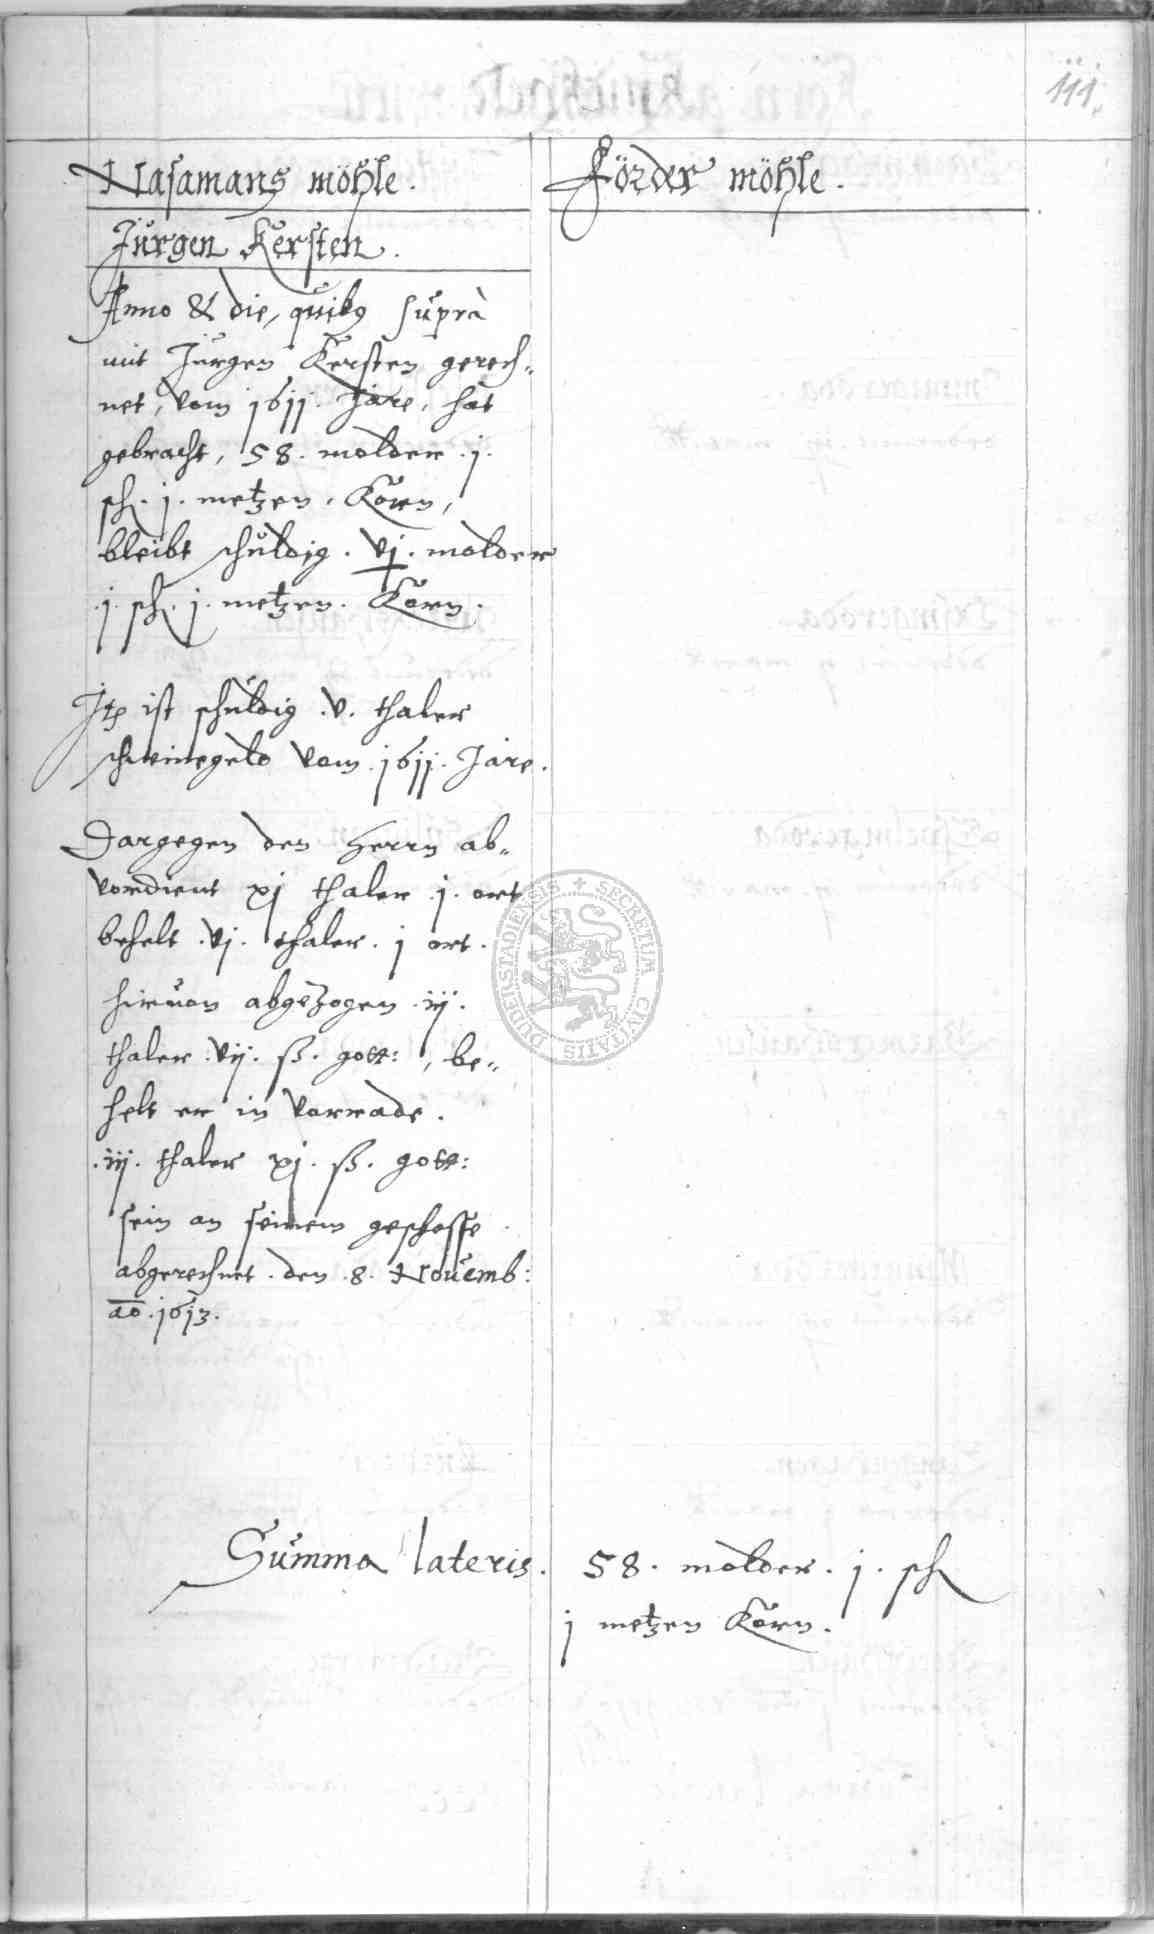 111.
Nasamans möhle.
Jürgen Kersten.
Anno & die, quibus suprà
mit Jürgen Kersten gerech-
net, vom 1611. Jare, hat
gebracht, 58. molder .j.
sch. j. metzen. Korn,
bleibt schuldig. vj. molder
.j. sch. j. metzen. Korn.
Jtem ist schuldig .v. thaler
schweinegeld vom .1611. Jare.
Dargegen den Herrn ab-
vordient xj thaler .j. ort
behelt .vj. thaler. j ort.
hiruon abgezogen .iij.
thaler .vij. ß. gott: , be-
helt er in vorrade.
.iij. thaler xj. ß. gott:
sein an seinem geschosse
abgerechnet. den .8. Nouemb:
ao. 1613.
Förder möhle.
Summa lateris. 58. molder. j. sch
j metzen Korn.
SECRETUM CIVITATIS DUDERSTADIENSIS